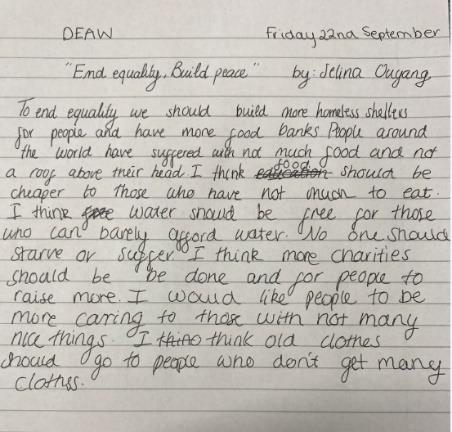 DEAW Friday 22nd September
"End equality, Build peace" by: Jelina Ouyang
To end equality we should build more homeless shelters
for people and have more food banks People around
the world have suffered with not much food and not
a roof above their head I think education food should be
cheaper to those who have not much to eat.
I think free water should be free for those
who can barely afford water. No one should
starve or suffer I think more charities
should be be done and for people to
raise more. I would like people to be
more caring to those with not many
nice things. I thino think old clothes
should go to people who don't get many
clothes.